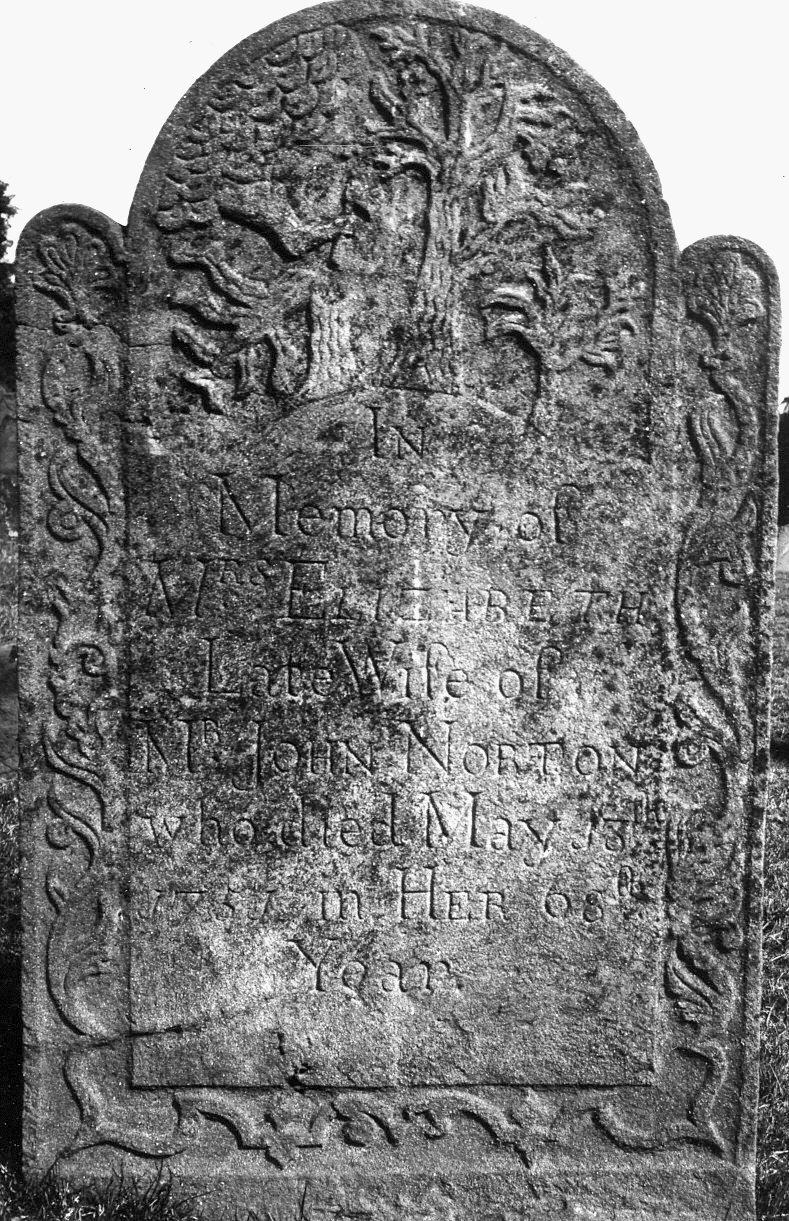 IN
Memory of
Mrs ELIZABETH
Late Wife of
Mr. JOHN NORTON
who died May 13th
1757 in HER 68th
Year